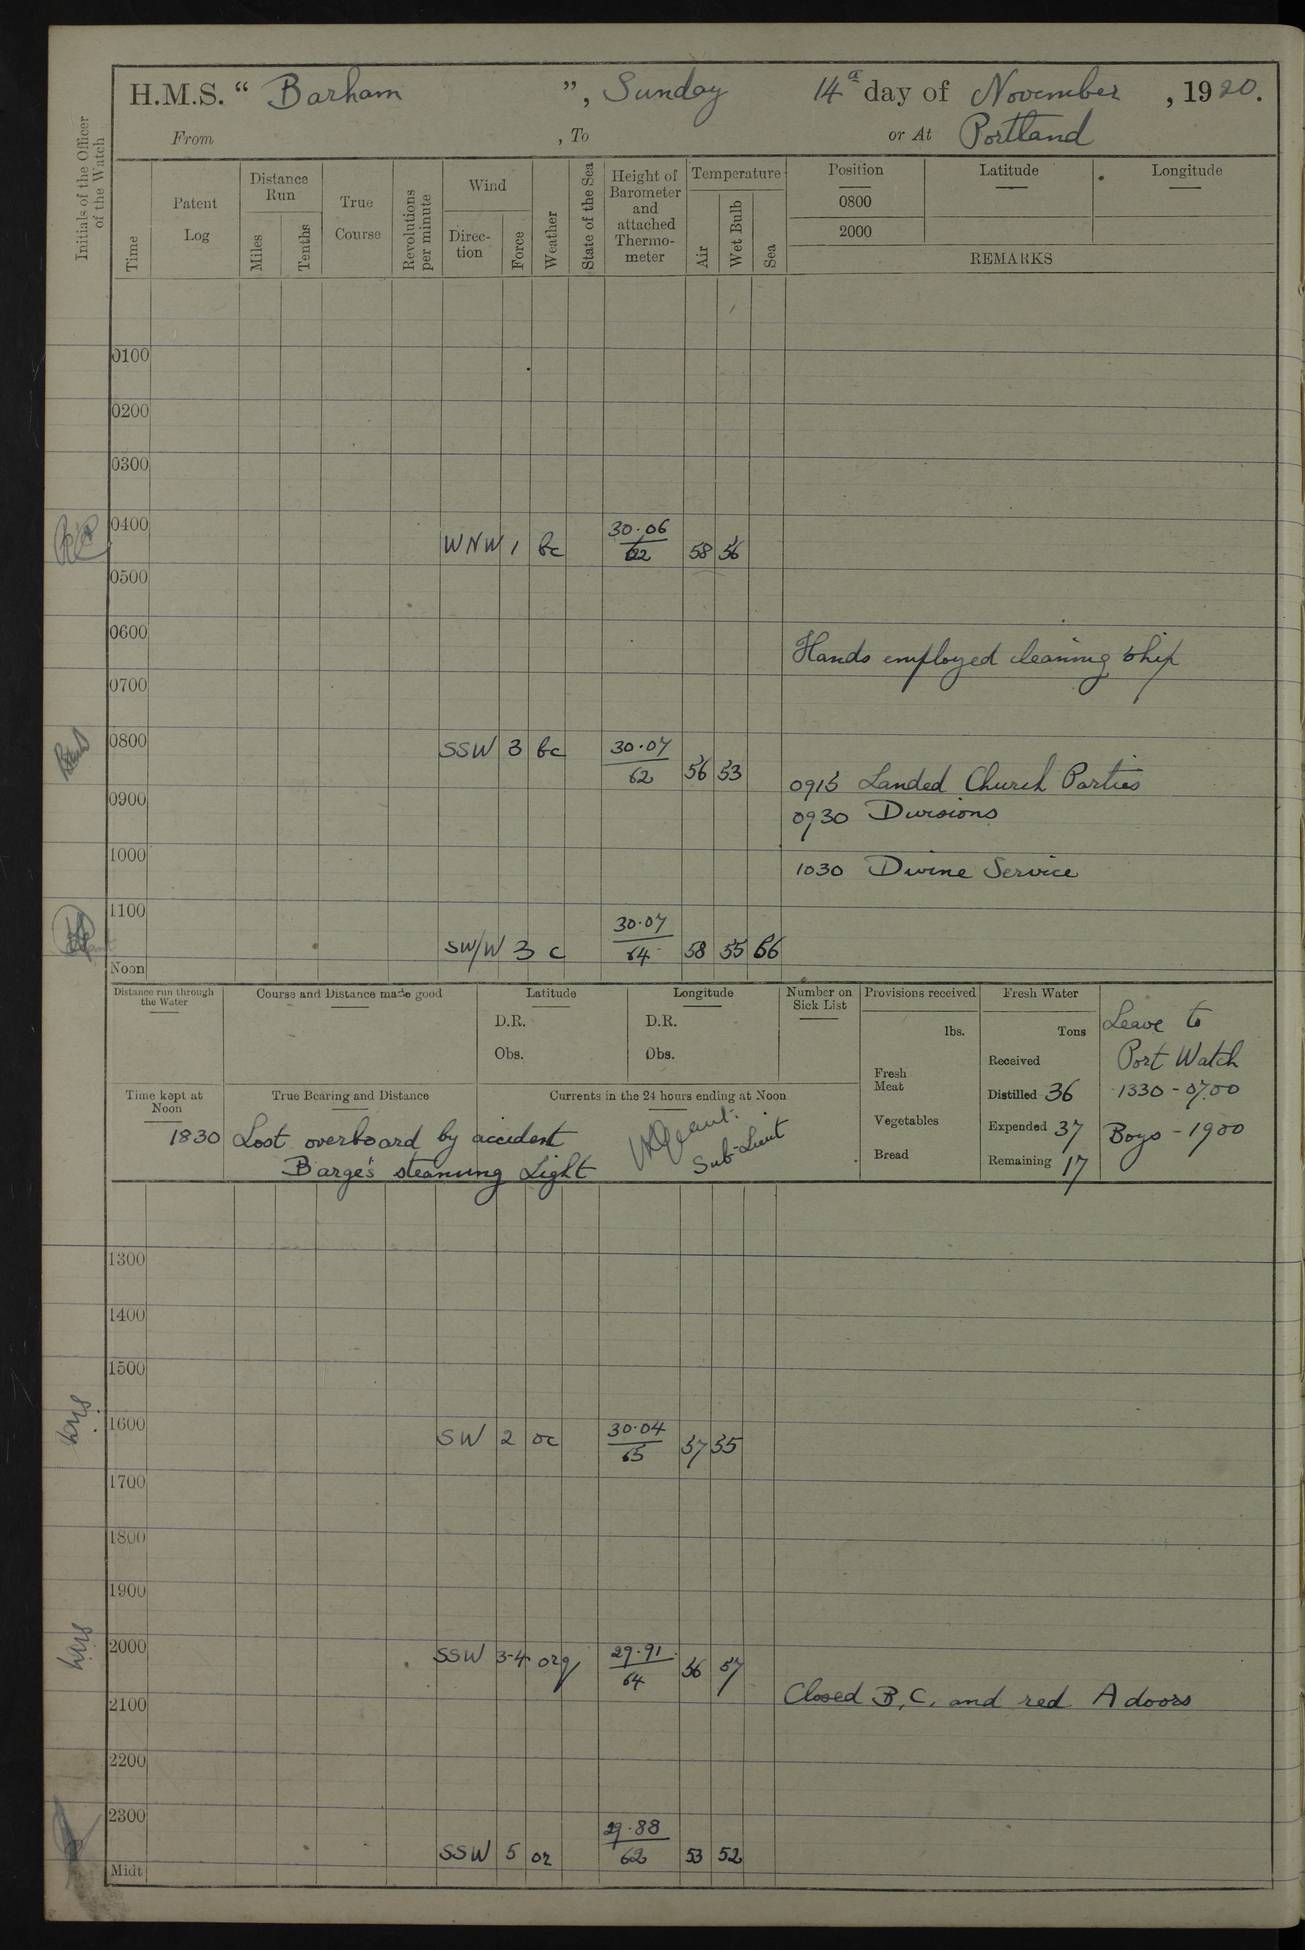 H.M.S. “ Barham ”, Sunday 14th day of November , 1920.
From , To or At Portland
Initials of the Officer of the Watch
Time
Patent Log
Distance Run
Miles
Tenths
True Course
Revolutions per minute
Wind
Direc-tion
Force
Weather
State of the Sea
Height of Barometer and attached Thermo-meter
Temperature
Air
Wet Bulb
Sea
Position Latitude Longitude
0800
2000
REMARKS
0100
0200
0300
0400
WNW 1 bc 30.06/62 58 56
0500
0600
Hands employed cleaning ship
0700
0800
SSW 3 bc 30.07/62 56 53
0915 Landed Church Parties
0900
0930 Divisions
1000
1030 Divine Service
1100
SW/W 3 c 30.07/64 58 55 56
Noon
Distance run through the Water
Course and Distance made good
Latitude
D.R.
Obs.
Longitude
D.R.
Obs.
Number on Sick List
Provisions received
lbs.
Fresh Meat
Vegetables
Bread
Fresh Water
Tons
Received
Distilled 36
Expended 37
Remaining 17
Leave to
Port Watch
1330 - 0700
Boys - 1900
Time kept at Noon
True Bearing and Distance
Currents in the 24 hours ending at Noon
1830 Lost overboard by accident
Barge's steaming Light
Sub-Lieut
1300
1400
1500
1600
SW 2 oc 30.04/65 57 55
1700
1800
1900
2000
SSW 3-4 orq 29.91/64 56 57
Closed B, C, and red A doors
2100
2200
2300
SSW 5 or 29.88/62 53 52
Midt